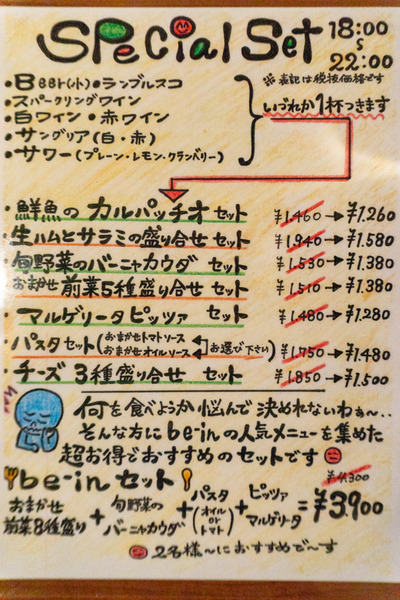 Special Set 18:00
~
22:00
※表記は税抜価格です
・Beer(小)・ランブルスコ
・スパークリングワイン
・白ワイン・赤ワイン
・サングリア(白・赤)
・サワー(プレーン・レモン・クランベリー)
いづれか1杯つきます
・鮮魚のカルパッチオセット ¥1.460→¥1.260
・生ハムとサラミの盛り合せセット ¥1.940→¥1.580
・旬野菜のバーニャカウダセット ¥1.530→¥1.380
・おまかせ前菜5種盛り合せセット ¥1.510→¥1.380
・マルゲリータピッツァセット ¥1.480→¥1.280
・パスタセット(おまかせトマトソース おまかせオイルソース お選び下さい) ¥1.750→¥1.480
・チーズ3種盛り合せセット ¥1.850→¥1.500
何を食べようか悩んで決めれないわぁ~..
そんな方にbe-inの人気メニューを集めた
超お得でおすすめのセットです
be-inセット ¥4.300
おまかせ前菜8種盛り+旬野菜のバーニャカウダ+パスタ(オイルorトマト)+ピッツァマルゲリータ=¥3.900
2名様~におすすめで~す